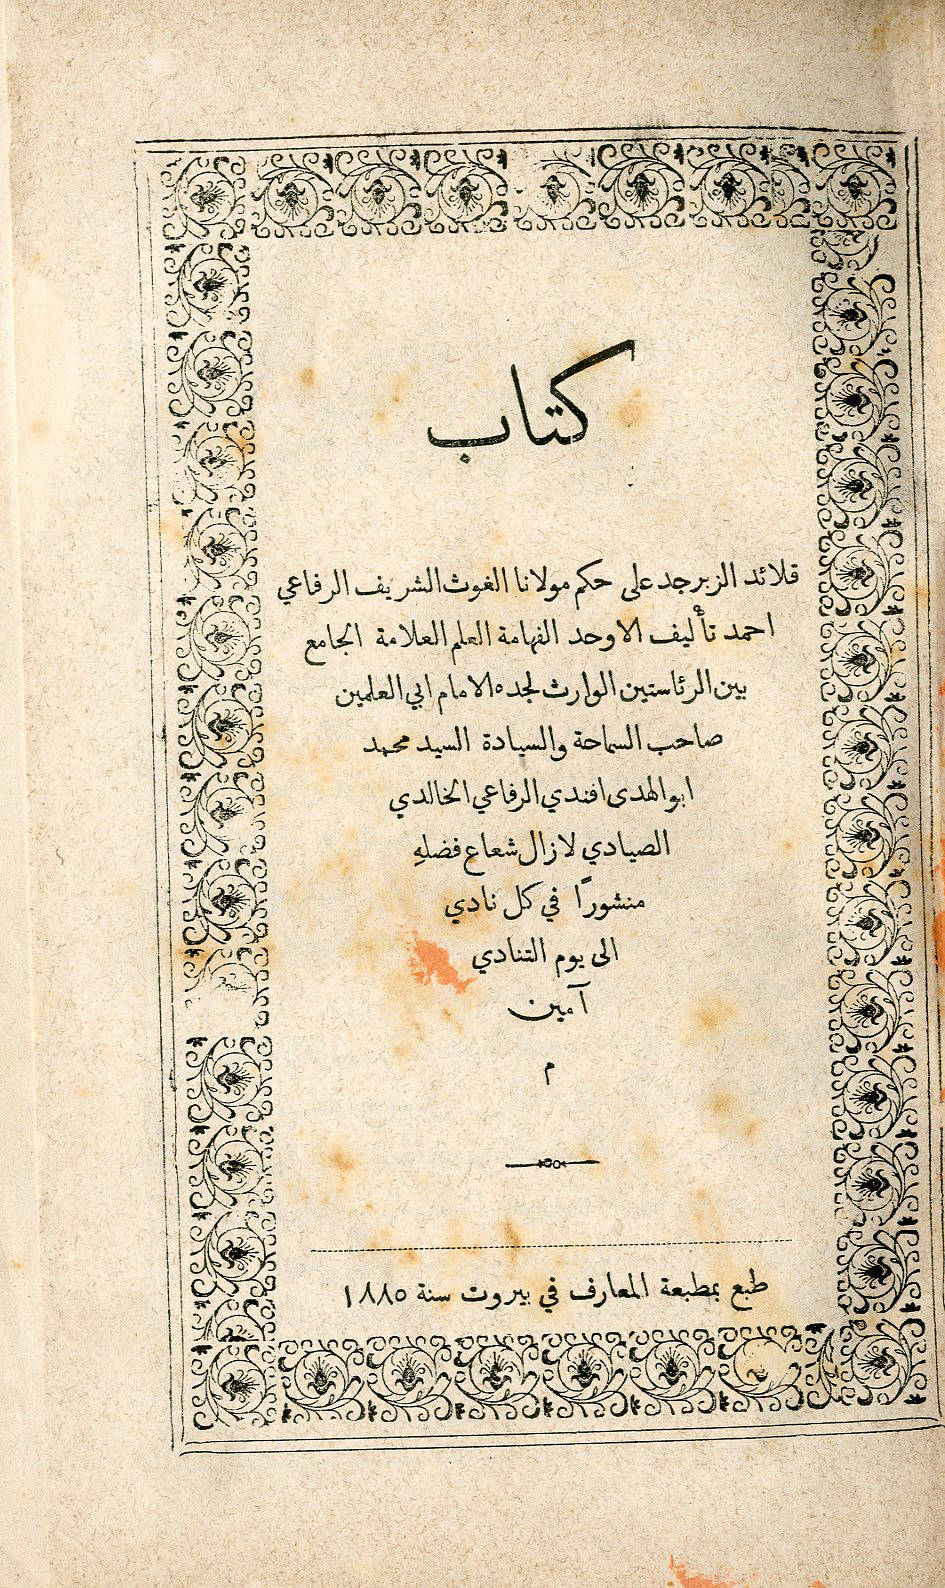 كتاب
قلائد الزبرجد على حكم مولانا الغوث الشريف الرفاعي
احمد تأليف الاوحد الفهامة العلم العلامة الجامع
بين الرئاستين الوارث لجده الامام ابي العلمين
صاحب السماحة والسيادة السيد محمد
ابو الهدى افندي الرفاعي الخالدي
الصيادي لا زال شعاع فضلهِ
منشورًا في كل نادي
الى يوم التنادي
آمين
م
طبع بمطبعة المعارف في بيروت سنة ١٨٨٥